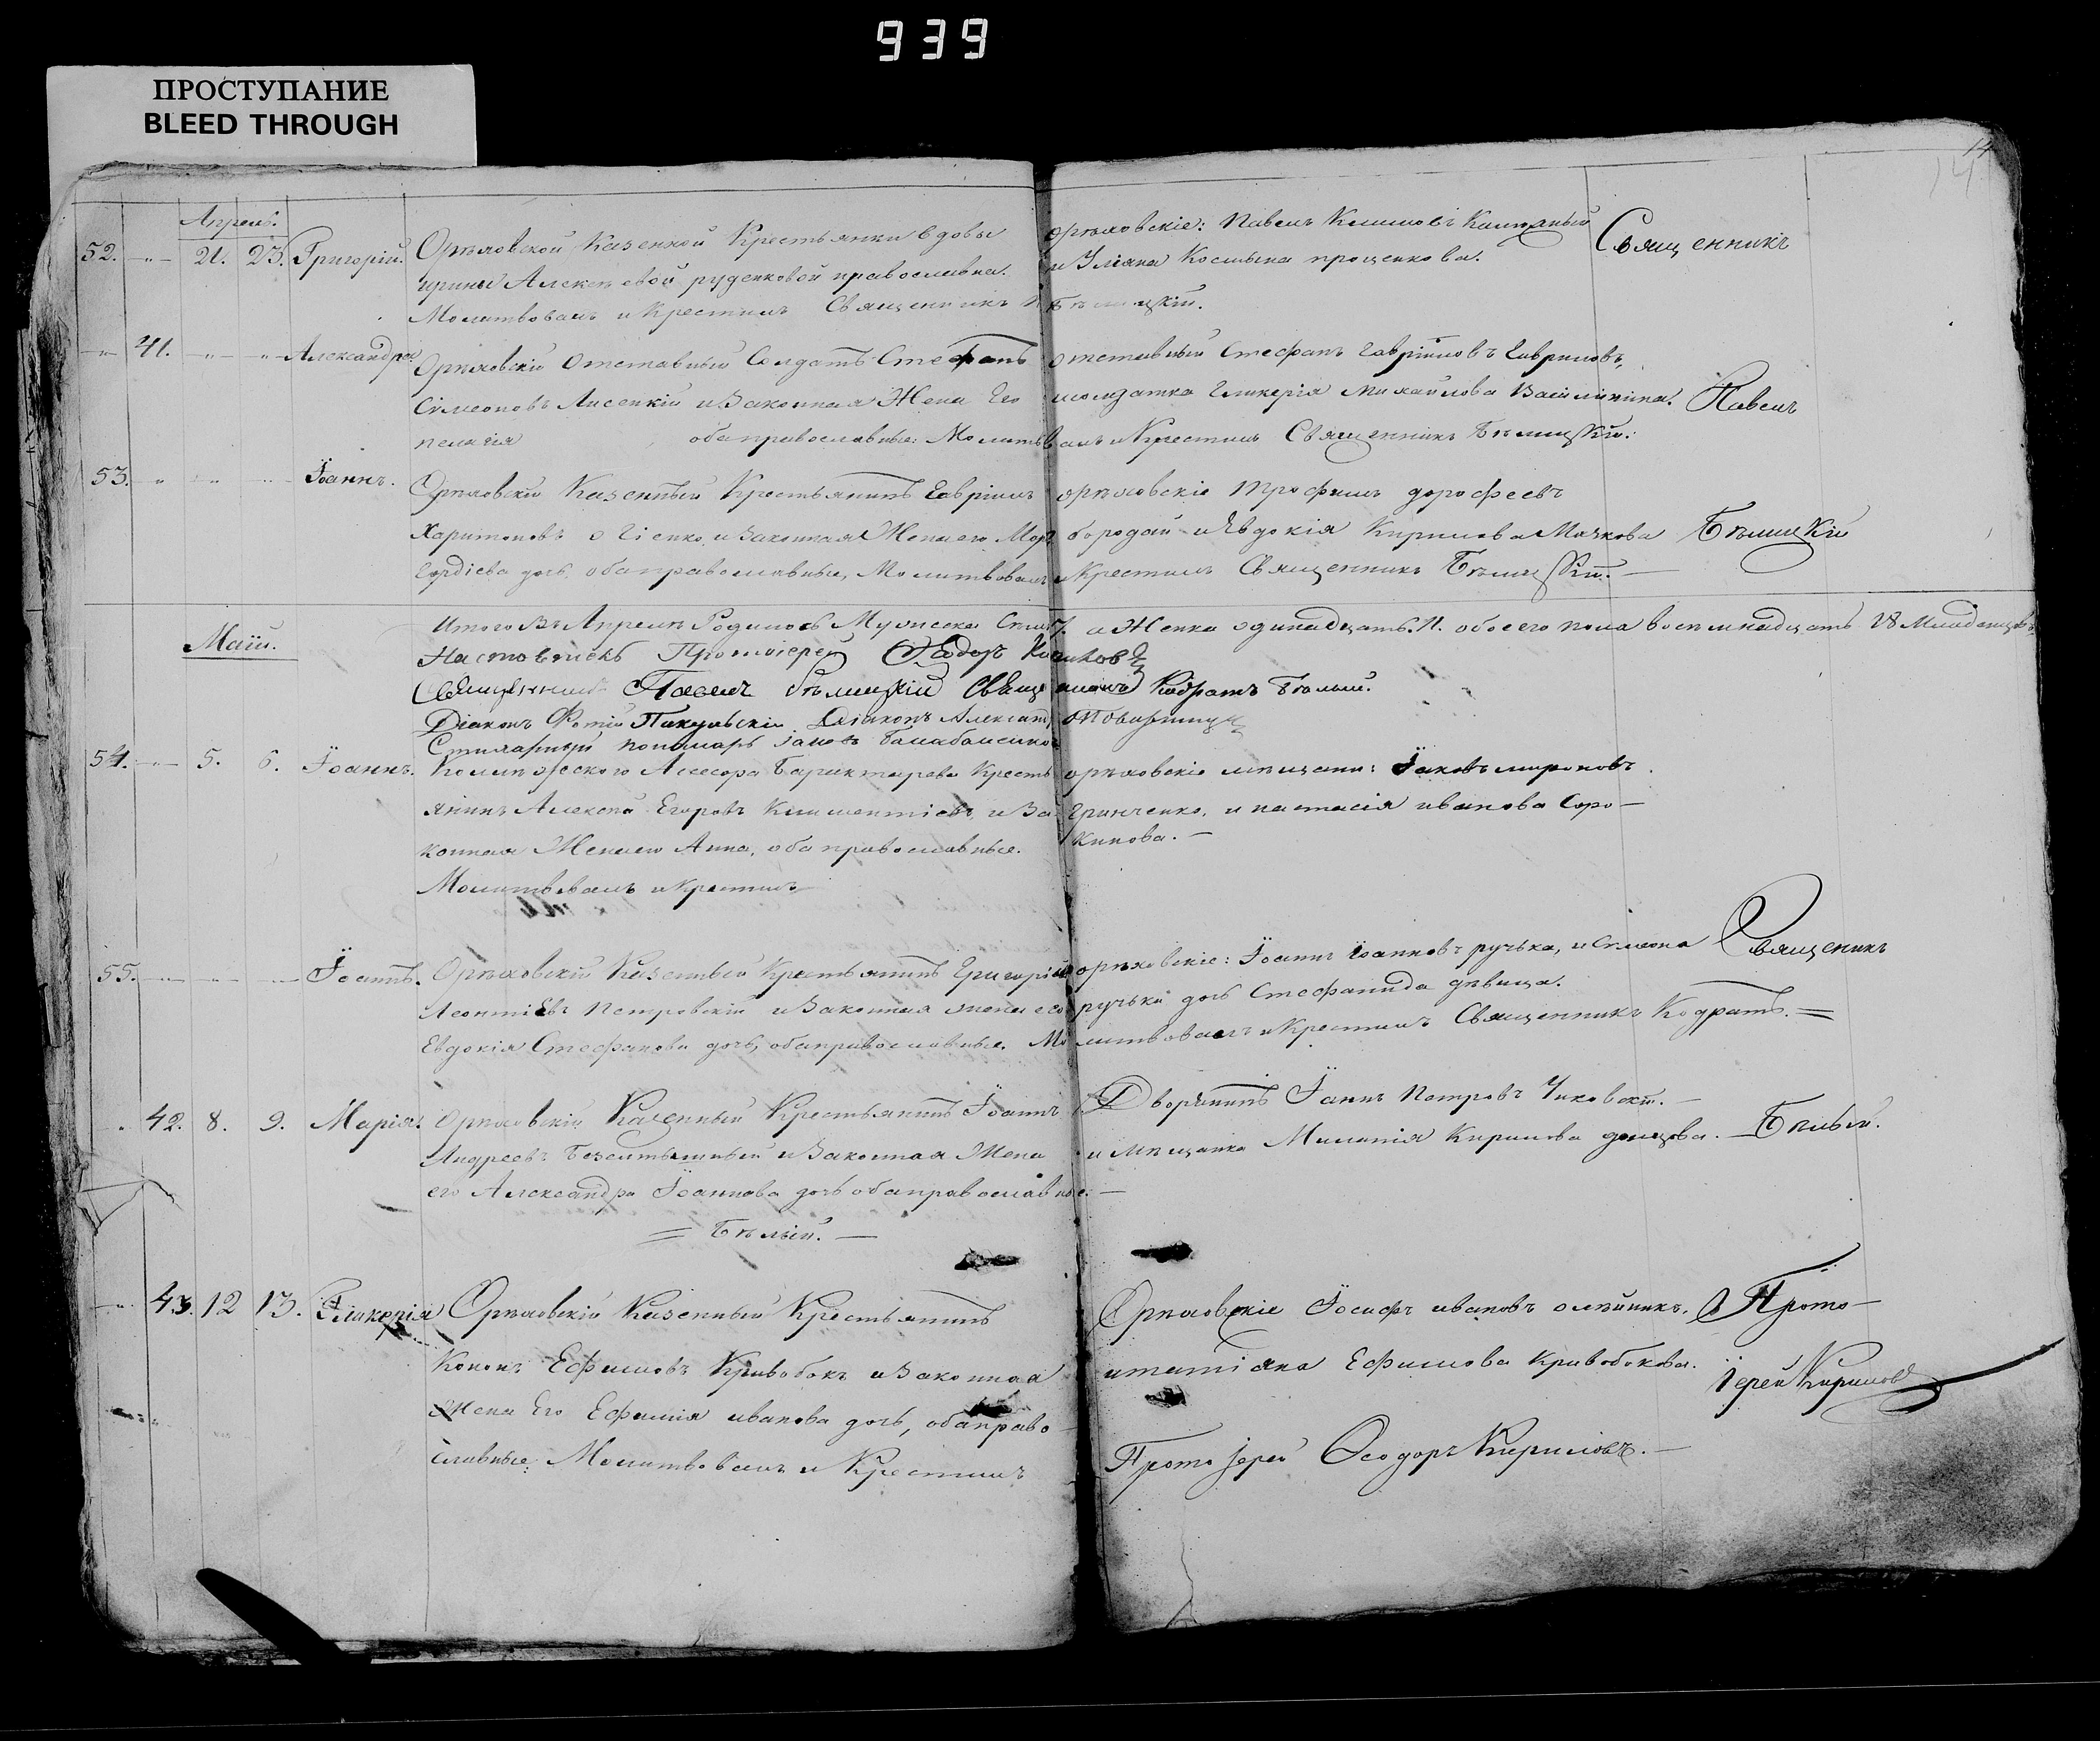 939
ПРОСТУПАНИЕ
BLEED THROUGH
14
Апрель.
52. 21. 23. Григорій. Орѣховской Казенной Крестьянки вдовы
Ирины Алексѣевой руденковой православна.
Молитвовалъ и Крестилъ Священникъ Бѣлицкій.
орѣховскіе: Павелъ Климовъ
и Уліяна Костина проценкова.
Священникъ
41. Александра Орѣховскій Отставный Солдатъ Стефанъ
Сѵмеоновъ Лисенкій и Законная Жена Его
пелагія обаправославные: Молитвовалъ и Крестилъ Священникъ Бѣлицкій.
отставный Стефанъ Гавріиловъ Гавриловъ,
исолдатка Гликерія Михайлова
Павелъ
53. Іоаннъ. Орѣховскій Казенный Крестьянинъ Гавріилъ
Харитоновъ и Законная Жена его
Гордіева дочь, обаправославные, Молитвовалъ и Крестилъ Священникъ Бѣлицкій.
орѣховскіе Трофимъ дорофеевъ
бородай и Евдокія Кирилова Мачкова
Бѣлицкій
Итого Въ Апрелѣ Родилось Мужеска Семь 7. а Женка одинадцать. 11. обоего пола восемнадцать 18 Младенцовъ
Маій.
Настоятель Протоіерей Феодоръ Кириловъ
Священникъ Павелъ Бѣлицкій Священникъ Кодратъ Бѣлый.
Діаконъ Фотій Пикульскій Діаконъ Александръ
пономарь Іаковъ
54. 5. 6. Іоаннъ. Колежского Асесора Крестьянинъ
Алексѣй Егоровъ Климентіевъ, и Законная
Жена его Анна, оба православные.
Молитвовалъ и Крестилъ
орѣховскіе мѣщане: Іаковъ мироновъ
Гринченко, и настасія иванова Сорокинова.
55. Іоаннъ. Орѣховскій Казенный Крестьянинъ Григорій
Леонтіевъ Петровскій и Законная жена его
Евдокія Стефанова дочь, обаправославные. Молитвовалъ и Крестилъ Священникъ Кодратъ.
орѣховскіе: Іоаннъ Іоанновъ ручька, и Сѵмеона
ручьки дочь Стефанида дѣвица.
Священикъ
42. 8. 9. Марія. Орѣховскій Казенный Крестьянинъ Іоаннъ
Андреевъ и Законная Жена
его Александра Іоаннова дочь обаправославные.
Бѣлый.
Дворянинъ Іанъ Петровъ
и Мѣщанка Миланія Кирилова донцова.
Бѣлый.
43. 12 13. Гликерія Орѣховскій Казенный Крестьянинъ
Кононъ Ефимовъ Кривобокъ и Законная
Жена Его Ефимія иванова дочь, обаправославные:
Молитвовалъ и Крестилъ Протоіерей Феодоръ Кириловъ.
Орѣховскіе Іосифъ ивановъ олѣйникъ,
итатіяна Ефимова Кривобокова.
Протоіерей Кириловъ